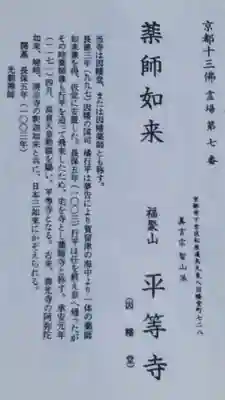 京都十三佛霊場第七番
京都市下京区松原通烏丸東入因幡堂町七二八
真言宗智山派
薬師如来
福聚山 平等寺
(因幡堂)
当寺は因幡堂、または因幡薬師とも称す。
長徳三年(九九七)因幡の国司 橘行平は夢告により賀留津の海中より一体の薬師
如来像を得、仮堂に安置した。長保五年(一〇〇三)行平は任を終え京へ帰ったが
その時薬師像も行平を追って飛来したため、宅を寺とし薬師寺と称す。承安元年
(一一七一)四月、高倉天皇勅額を賜い、平等寺となる。古来、善光寺の阿弥陀
如来、嵯峨、清凉寺の釈迦如来と共に、日本三如来にかぞえられる。
開基 長保五年(一〇〇三年)
光朝禅師